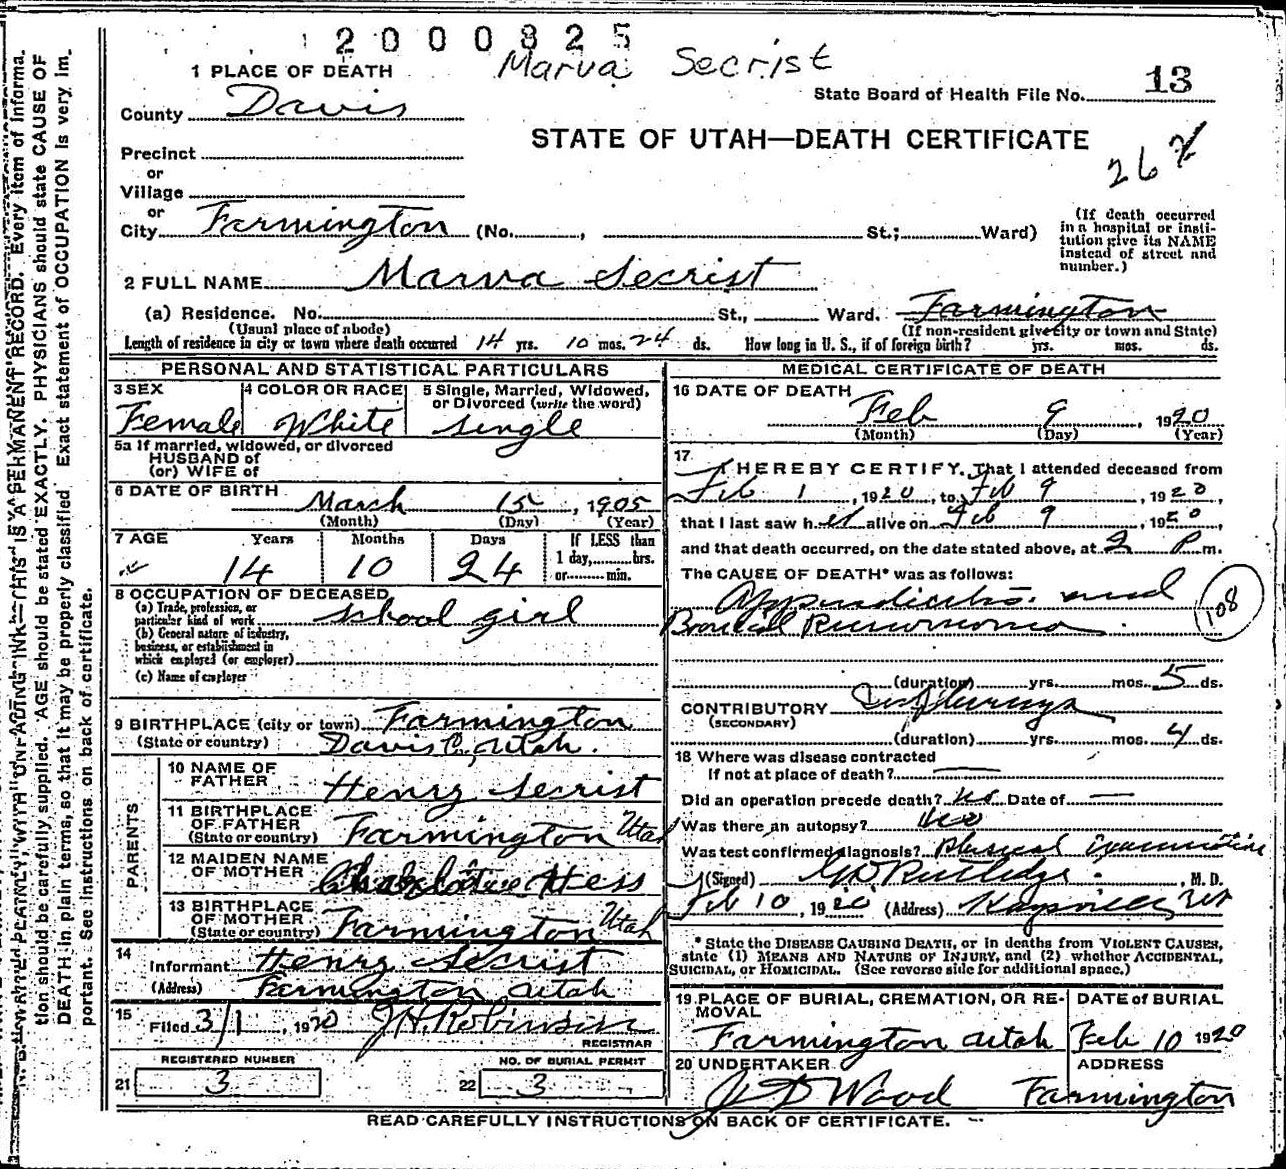 2000825
Marva Secrist
1 PLACE OF DEATH
State Board of Health File No. 13
County Davis
STATE OF UTAH—DEATH CERTIFICATE
262
Precinct
or
Village
or
City Farmington (No. , St.; Ward)
(If death occurred in a hospital or institution give its NAME instead of street and number.)
2 FULL NAME Marva Secrist
(a) Residence. No. St., Ward. Farmington
(Usual place of abode) (If non-resident give city or town and State)
Length of residence in city or town where death occurred 14 yrs. 10 mos. 24 ds. How long in U. S., if of foreign birth? yrs. mos. ds.
PERSONAL AND STATISTICAL PARTICULARS
3 SEX Female
4 COLOR OR RACE White
5 Single, Married, Widowed, or Divorced (write the word) single
5a If married, widowed, or divorced
HUSBAND of
(or) WIFE of
6 DATE OF BIRTH March 15, 1905
(Month) (Day) (Year)
7 AGE Years Months Days If LESS than
14 10 24 1 day, hrs.
or min.
8 OCCUPATION OF DECEASED
(a) Trade, profession, or particular kind of work school girl
(b) General nature of industry, business, or establishment in which employed (or employer)
(c) Name of employer
9 BIRTHPLACE (city or town) Farmington
(State or country) Davis C, Utah.
PARENTS
10 NAME OF FATHER Henry Secrist
11 BIRTHPLACE OF FATHER (State or country) Farmington Utah
12 MAIDEN NAME OF MOTHER Hess
13 BIRTHPLACE OF MOTHER (State or country) Farmington Utah
14 Informant Henry Secrist
(Address) Farmington Utah
15 Filed 3/1, 1920 J.H. Robinson
REGISTRAR
REGISTERED NUMBER NO. OF BURIAL PERMIT
21 3 22 3
MEDICAL CERTIFICATE OF DEATH
16 DATE OF DEATH
Feb 9, 1920
(Month) (Day) (Year)
17 I HEREBY CERTIFY, That I attended deceased from
Feb 1, 1920, to Feb 9, 1920,
that I last saw her alive on Feb 9, 1920,
and that death occurred, on the date stated above, at 2 P m.
The CAUSE OF DEATH* was as follows:
Appendicitis. and
Bronchial Pneumonia.
108
(duration) yrs. mos. 5 ds.
CONTRIBUTORY Influenza
(SECONDARY)
(duration) yrs. mos. 4 ds.
18 Where was disease contracted
If not at place of death? —
Did an operation precede death? No Date of —
Was there an autopsy? No
Was test confirmed diagnosis? Physical Examination
(Signed) G D Rutledge, M. D.
Feb 10, 1920 (Address) Kaysville, Ut
* State the DISEASE CAUSING DEATH, or in deaths from VIOLENT CAUSES, state (1) MEANS AND NATURE OF INJURY, and (2) whether ACCIDENTAL, SUICIDAL, or HOMICIDAL. (See reverse side for additional space.)
19 PLACE OF BURIAL, CREMATION, OR REMOVAL DATE of BURIAL
Farmington Utah Feb 10 1920
20 UNDERTAKER ADDRESS
J D Wood Farmington
READ CAREFULLY INSTRUCTIONS ON BACK OF CERTIFICATE.
THIS IS A PERMANENT RECORD. Every item of informa-
tion should be carefully supplied. AGE should be stated EXACTLY. PHYSICIANS should state CAUSE OF
DEATH in plain terms, so that it may be properly classified. Exact statement of OCCUPATION is very im-
portant. See instructions on back of certificate.